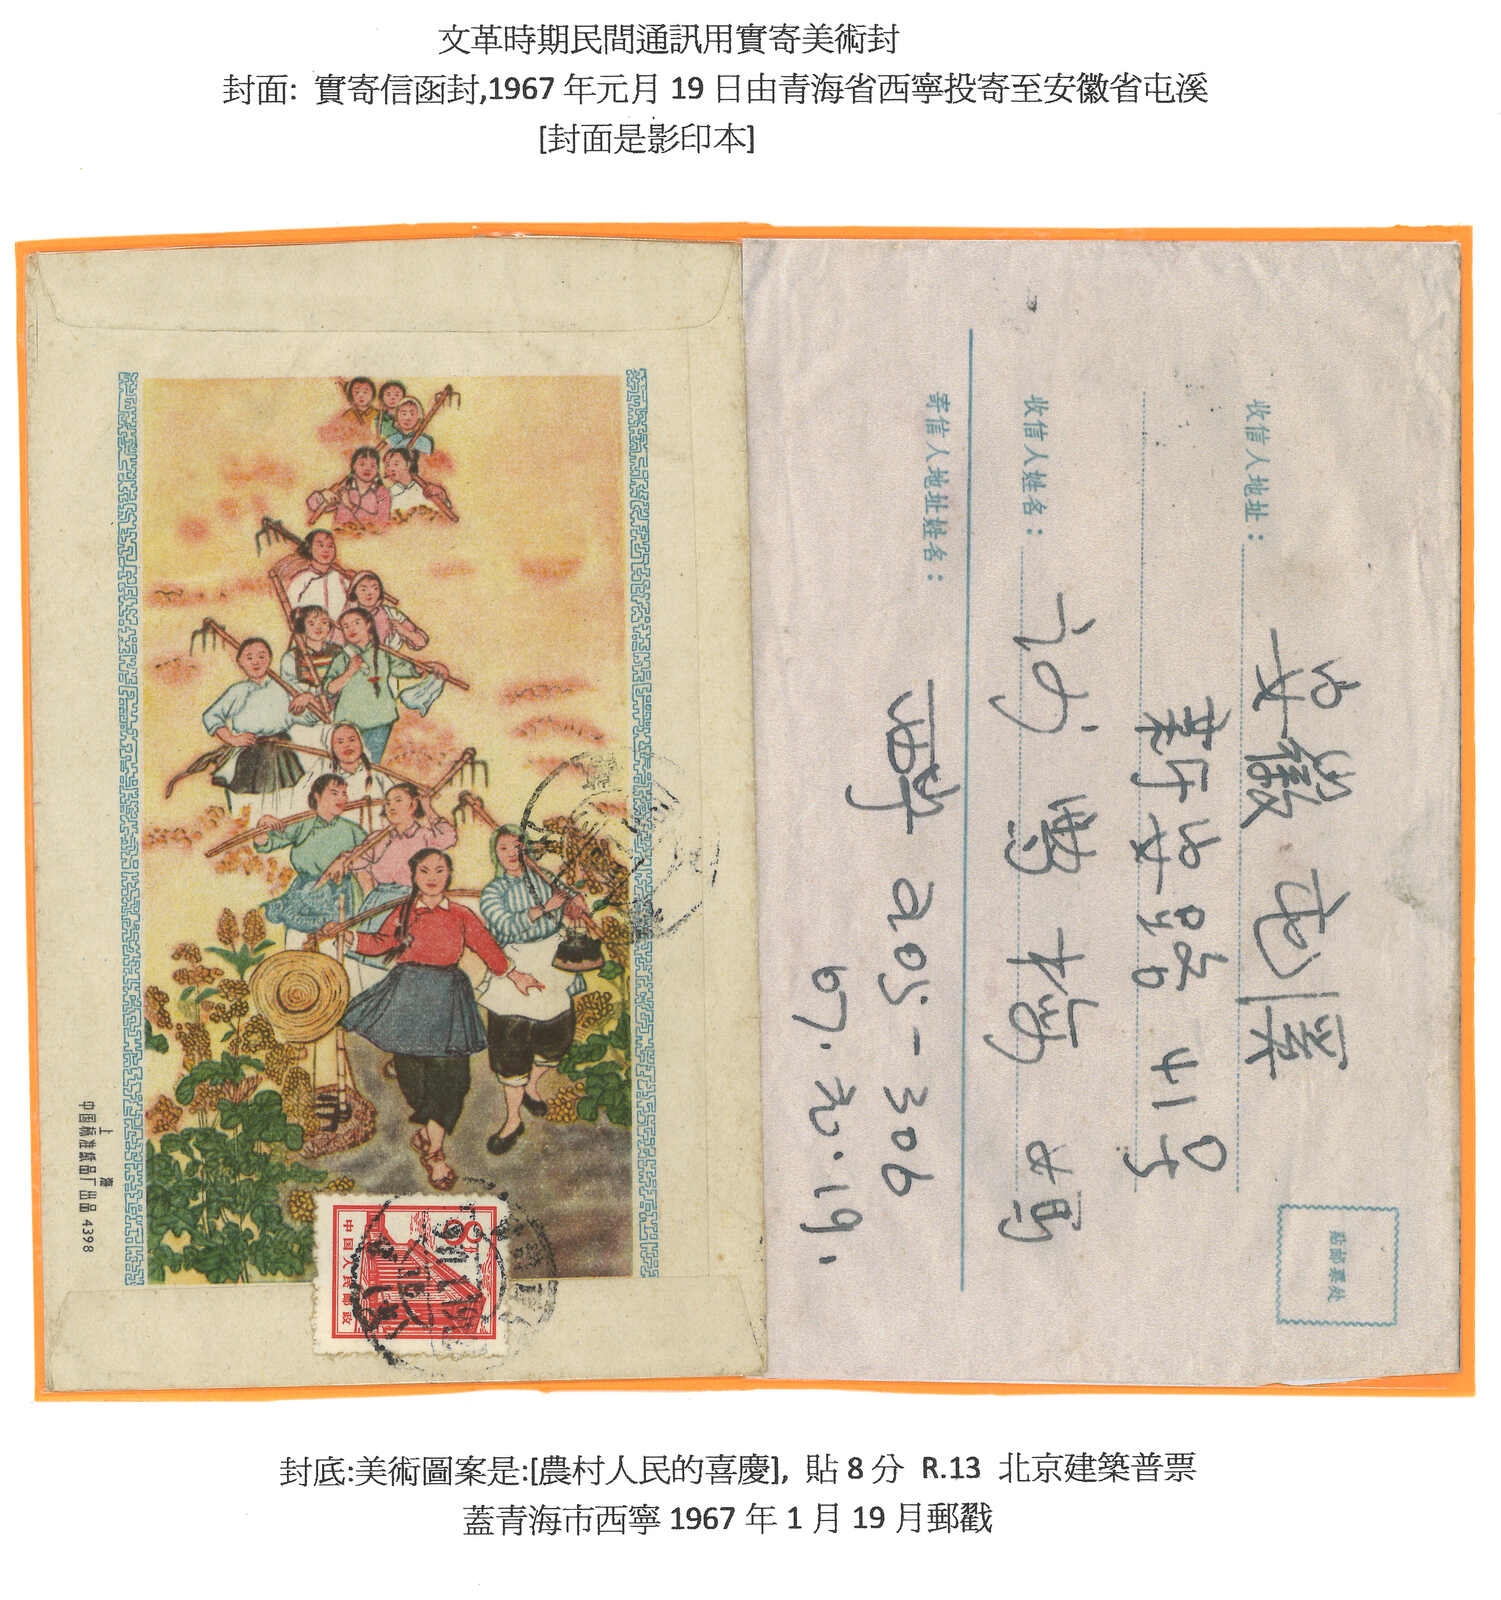 文革時期民間通訊用實寄美術封
封面: 實寄信函封,1967 年元月 19 日由青海省西寧投寄至安徽省屯溪
[封面是影印本]
收信人地址:
安徽 屯溪
新安路 41号
收信人姓名:
寄信人地址姓名:
西宁 205-306
67.元.19.
贴邮票处
上海
中国标准纸品厂出品 4398
8分
中国人民邮政
封底:美術圖案是:[農村人民的喜慶], 貼 8 分 R.13 北京建築普票
蓋青海市西寧 1967 年 1 月 19 月郵戳